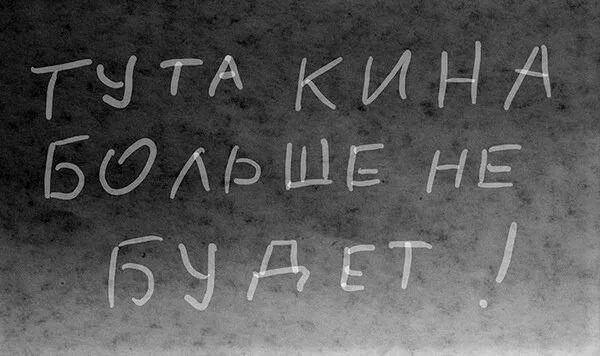 ТУТА КИНА
БОЛЬШЕ НЕ
БУДЕТ!